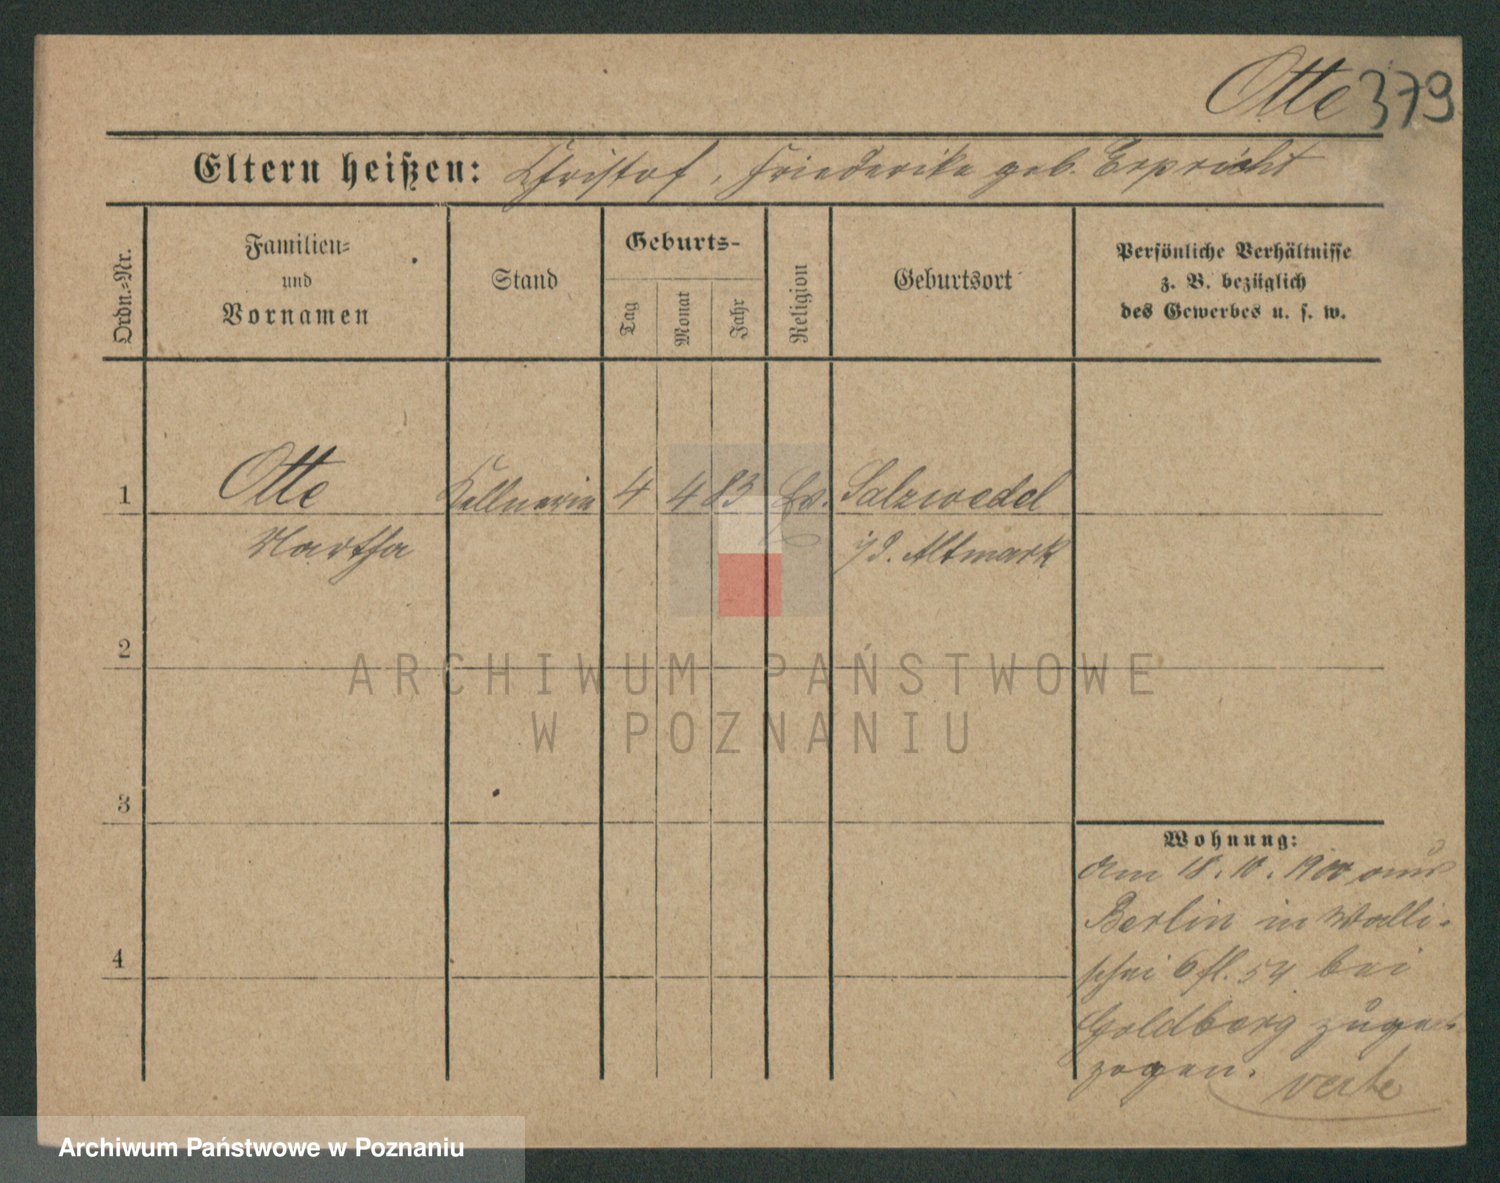 Otte 379
Eltern heißen: Christof, Friederike geb. Erpricht
Ordn.-Nr.
Familien-
und
Vornamen
Stand
Geburts-
Tag
Monat
Jahr
Religion
Geburtsort
Persönliche Verhältnisse
z. B. bezüglich
des Gewerbes u. s. w.
1 Otte Kellnerin 4 4 83 Ev. Salzwedel
Martha i/d. Altmark
2
3
4
Wohnung:
Am 18.10.1900 aus
Berlin in Walli-
schei 54 bei
Goldberg zuge-
zogen.
verte
ARCHIWUM PAŃSTWOWE
W POZNANIU
Archiwum Państwowe w Poznaniu